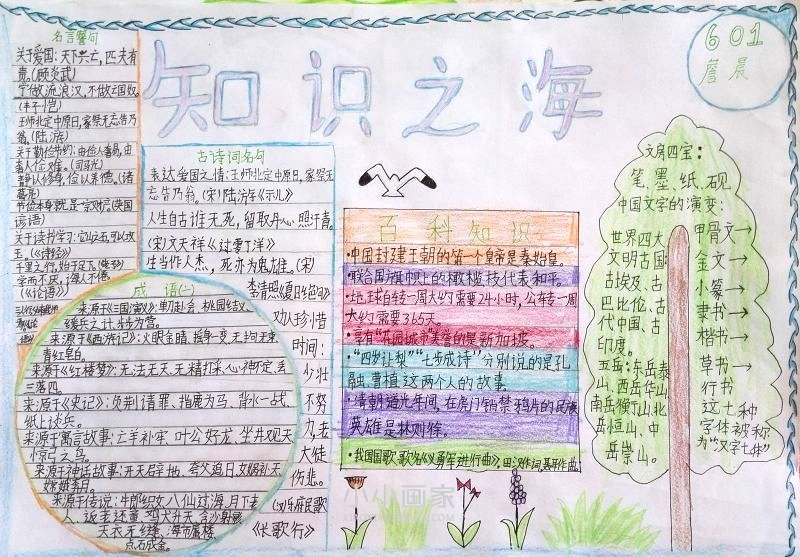 知识之海
601
詹晨
名言警句
关于爱国:天下兴亡,匹夫有
责。(顾炎武)
宁做流浪汉,不做亡国奴。
(丰子恺)
王师北定中原日,家祭无忘告乃
翁。(陆游)
关于勤俭节约:由俭入奢易,由
奢入俭难。(司马光)
静以修身,俭以养德。(诸
葛亮)
节俭本身就是一宗财产。(英国
谚语)
关于读书学习:它山之石,可以攻
玉。(《诗经》)
千里之行,始于足下。(老子)
学而不厌,诲人不倦。
(《论语》)
古诗词名句
表达爱国之情:王师北定中原日,家祭无
忘告乃翁。(宋)陆游《示儿》
人生自古谁无死,留取丹心照汗青。
(宋)文天祥《过零丁洋》
生当作人杰,死亦为鬼雄。(宋)
李清照《夏日绝句》
劝人珍惜
时间:
少壮
不努
力,老
大徒
伤悲。
(汉)乐府民歌
《长歌行》
成语(二)
来源于《三国演义》:单刀赴会、桃园结义、
缓兵之计、步步为营。
来源于《西游记》:火眼金睛、摇身一变、无拘无束、
青红皂白。
来源于《红楼梦》:无法无天、无精打采、心神不定、丢
三落四。
来源于《史记》:负荆请罪、指鹿为马、背水一战、
纸上谈兵。
来源于寓言故事:亡羊补牢、叶公好龙、坐井观天、
惊弓之鸟。
来源于神话故事:开天辟地、夸父追日、女娲补天、
嫦娥奔月。
来源于传说:牛郎织女、八仙过海、月下老
人、返老还童、鸡犬升天、含沙射影、
天衣无缝、海市蜃楼、
点石成金。
百科知识
·中国封建王朝的第一个皇帝是秦始皇。
·联合国旗帜上的橄榄枝代表和平。
·地球自转一周大约需要24小时,公转一周
大约需要365天。
·享有“花园城市”美誉的是新加坡。
·“四岁让梨”“七步成诗”分别说的是孔
融、曹植这两个人的故事。
·清朝道光年间,在虎门销禁鸦片的民族
英雄是林则徐。
·我国国歌歌名《义勇军进行曲》,田汉作词,聂耳作曲。
文房四宝:
笔、墨、纸、砚
中国文字的演变:
甲骨文→
金文→
小篆→
隶书→
楷书→
草书→
行书
这七种
字体被称
为“汉字七体”
世界四大
文明古国:
古埃及、古
巴比伦、古
代中国、古
印度。
五岳:东岳泰
山、西岳华山、
南岳衡山、北
岳恒山、中
岳嵩山。
小小画家